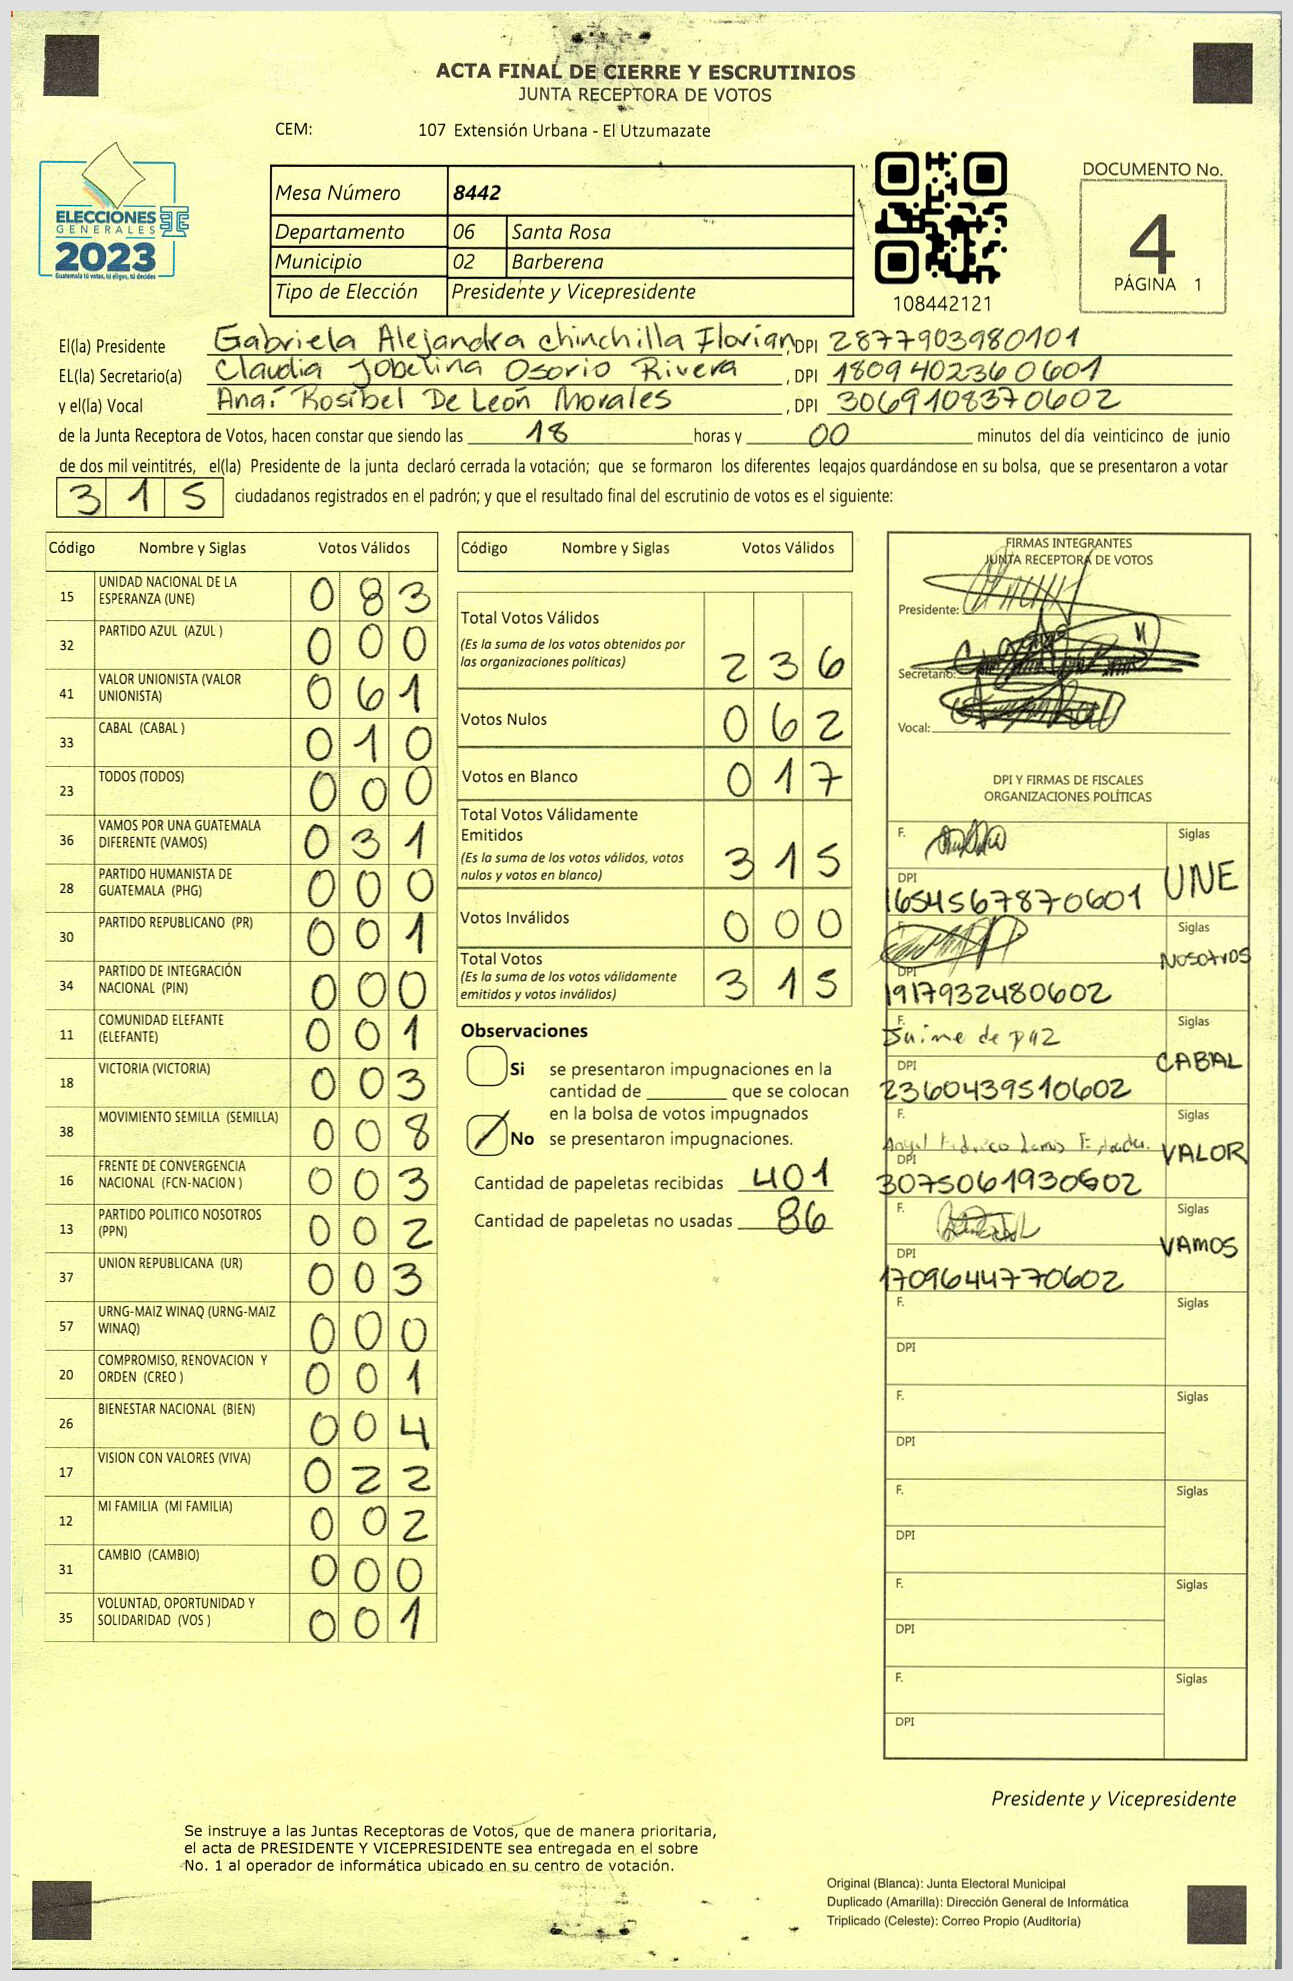 ACTA FINAL DE CIERRE Y ESCRUTINIOS
JUNTA RECEPTORA DE VOTOS
CEM: 107 Extensión Urbana - El Utzumazate
ELECCIONES
GENERALES
2023
Guatemala tú votas, tú eliges, tú decides
Mesa Número 8442
Departamento 06 Santa Rosa
Municipio 02 Barberena
Tipo de Elección Presidente y Vicepresidente
108442121
DOCUMENTO No.
4
PÁGINA 1
El(la) Presidente Gabriela Alejandra Chinchilla Florian, DPI 2877903980101
EL(la) Secretario(a) Claudia Jobelina Osorio Rivera, DPI 1809402360601
y el(la) Vocal Anaí Rosibel De León Morales, DPI 3069108370602
de la Junta Receptora de Votos, hacen constar que siendo las 18 horas y 00 minutos del día veinticinco de junio
de dos mil veintitrés, el(la) Presidente de la junta declaró cerrada la votación; que se formaron los diferentes legajos guardándose en su bolsa, que se presentaron a votar
315 ciudadanos registrados en el padrón; y que el resultado final del escrutinio de votos es el siguiente:
Código Nombre y Siglas Votos Válidos
15 UNIDAD NACIONAL DE LA ESPERANZA (UNE) 083
32 PARTIDO AZUL (AZUL ) 000
41 VALOR UNIONISTA (VALOR UNIONISTA) 061
33 CABAL (CABAL ) 010
23 TODOS (TODOS) 000
36 VAMOS POR UNA GUATEMALA DIFERENTE (VAMOS) 031
28 PARTIDO HUMANISTA DE GUATEMALA (PHG) 000
30 PARTIDO REPUBLICANO (PR) 001
34 PARTIDO DE INTEGRACIÓN NACIONAL (PIN) 000
11 COMUNIDAD ELEFANTE (ELEFANTE) 001
18 VICTORIA (VICTORIA) 003
38 MOVIMIENTO SEMILLA (SEMILLA) 008
16 FRENTE DE CONVERGENCIA NACIONAL (FCN-NACION ) 003
13 PARTIDO POLITICO NOSOTROS (PPN) 002
37 UNION REPUBLICANA (UR) 003
57 URNG-MAIZ WINAQ (URNG-MAIZ WINAQ) 000
20 COMPROMISO, RENOVACION Y ORDEN (CREO ) 001
26 BIENESTAR NACIONAL (BIEN) 004
17 VISION CON VALORES (VIVA) 022
12 MI FAMILIA (MI FAMILIA) 002
31 CAMBIO (CAMBIO) 000
35 VOLUNTAD, OPORTUNIDAD Y SOLIDARIDAD (VOS ) 001
Código Nombre y Siglas Votos Válidos
Total Votos Válidos
(Es la suma de los votos obtenidos por
las organizaciones políticas) 236
Votos Nulos 062
Votos en Blanco 017
Total Votos Válidamente
Emitidos
(Es la suma de los votos válidos, votos
nulos y votos en blanco) 315
Votos Inválidos 000
Total Votos
(Es la suma de los votos válidamente
emitidos y votos inválidos) 315
Observaciones
Si se presentaron impugnaciones en la
cantidad de ______ que se colocan
en la bolsa de votos impugnados
No se presentaron impugnaciones.
Cantidad de papeletas recibidas 401
Cantidad de papeletas no usadas 86
FIRMAS INTEGRANTES
JUNTA RECEPTORA DE VOTOS
Presidente:
Secretario:
Vocal:
DPI Y FIRMAS DE FISCALES
ORGANIZACIONES POLÍTICAS
F. Siglas
DPI UNE
1654567870601
F. Siglas
DPI NOSOTROS
1917932480602
F. Siglas
Jaime de paz
DPI CABAL
2360439510602
F. Siglas
Angel
DPI VALOR
3075061930602
F. Siglas
DPI VAMOS
1709644770602
F. Siglas
DPI
F. Siglas
DPI
F. Siglas
DPI
F. Siglas
DPI
F. Siglas
DPI
Presidente y Vicepresidente
Se instruye a las Juntas Receptoras de Votos, que de manera prioritaria,
el acta de PRESIDENTE Y VICEPRESIDENTE sea entregada en el sobre
No. 1 al operador de informática ubicado en su centro de votación.
Original (Blanca): Junta Electoral Municipal
Duplicado (Amarilla): Dirección General de Informática
Triplicado (Celeste): Correo Propio (Auditoría)